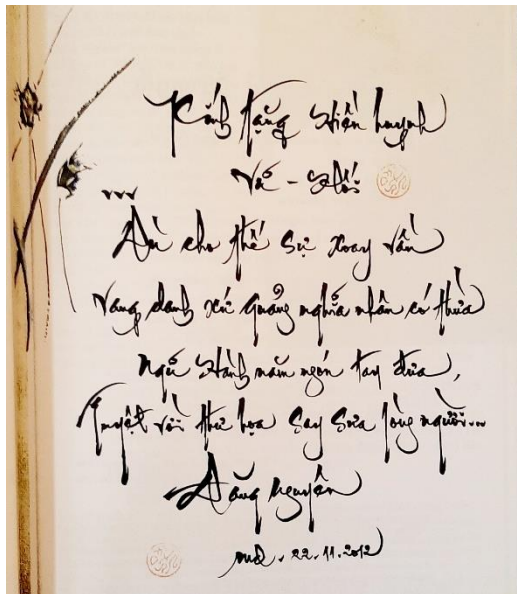 Kính tặng hiền huynh
Võ - Hối
Dù cho thế sự xoay vần
Vang danh xứ Quảng nghĩa nhân có thừa
Ngũ Hành năm ngón tay đưa,
Tuyệt vời thư họa say sưa lòng người...
Đăng Nguyên
22.11.2012